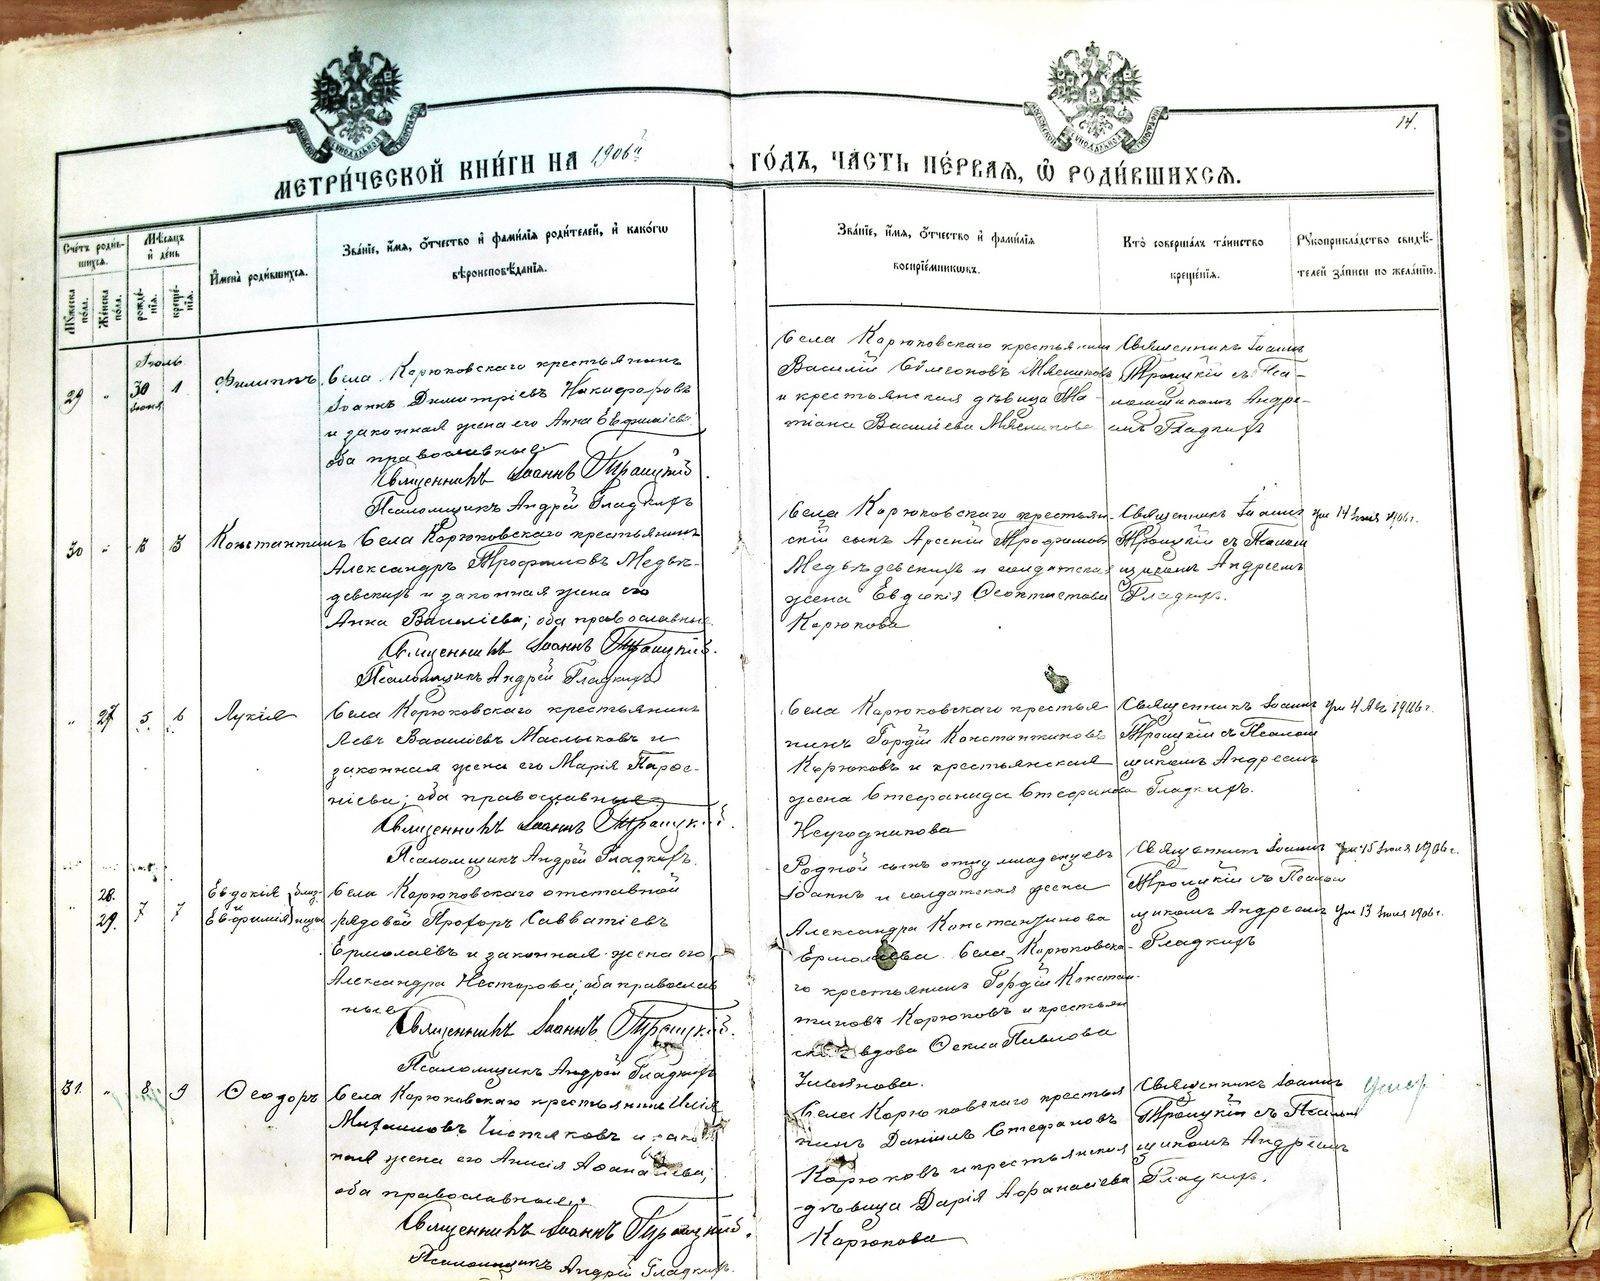 14.
МЕТРИЧЕСКОЙ КНИГИ НА 1906й ГОДЪ, ЧАСТЬ ПЕРВАЯ, Ѡ РОДИВШИХСЯ.
Счетъ родив-
шихся.
Мужеска
пола.
Женска
пола.
Мѣсяцъ
и день
рожде-
нія.
креще-
нія.
Имена родившихся.
Званіе, имя, отчество и фамилія родителей, и какогѡ
вѣроисповѣданія.
Званіе, имя, отчество и фамилія
воспріемниковъ.
Кто совершалъ таинство
крещенія.
Рукоприкладство свидѣ-
телей записи по желанію.
Іюль
29 " 30 Іюня 1
Филиппъ
Села Корюковскаго крестьянинъ
Іоаннъ Димитріевъ Никифоровъ
и законная жена его Анна Евфиміева
оба православные
Священникъ Іоаннъ Троицкій
Псаломщикъ Андрей Гладкихъ
Села Корюковскаго крестьянинъ
Василій Сумеоновъ Мясниковъ
и крестьянская дѣвица Та-
тіана Василіева Мясникова
Священникъ Іоаннъ
Троицкій съ Пса-
ломщикомъ Андре-
емъ Гладкихъ
30 " 3 3
Константинъ
Села Корюковскаго крестьянинъ
Александръ Трофимовъ Медвѣ-
девскихъ и законная жена его
Анна Василіева; оба православные
Священникъ Іоаннъ Троицкій.
Псаломщикъ Андрей Гладкихъ
Села Корюковскаго крестьян-
скій сынъ Арсеній Трофимовъ
Медвѣдевскихъ и солдатская
жена Евдокія Феоктистова
Корюкова
Священникъ Іоаннъ
Троицкій съ Псалом
щикомъ Андреемъ
Гладкихъ.
ум 14 Іюля 1906г.
" 27 5 6
Лукія
Села Корюковскаго крестьянинъ
Левъ Василіевъ Маслыковъ и
законная жена его Марія Парѳе-
ніева; оба православные
Священникъ Іоаннъ Троицкій.
Псаломщикъ Андрей Гладкихъ.
Села Корюковскаго крестья
нинъ Гордій Константиновъ
Корюковъ и крестьянская
жена Стефанида Стефанова
Неугодникова
Священникъ Іоаннъ
Троицкій съ Псалом
щикомъ Андреемъ
Гладкихъ.
ум 4 Авг 1906г.
" 28. 29. 7 7
Евдокія
и
Евфимія
близ-
ницы
Села Корюковскаго отставной
рядовой Прохоръ Савватіевъ
Ермолаевъ и законная жена его
Александра Несторова; оба православ
ные
Священникъ Іоаннъ Троицкій.
Псаломщикъ Андрей Гладкихъ
Родной сынъ отцу младенцевъ
Іоаннъ и солдатская жена
Александра Константинова
Ермолаева. Села Корюковска-
го крестьянинъ Гордій Констан-
тиновъ Корюковъ и крестьян
вдова Ѳекла Павлова
Ульянова.
Священникъ Іоаннъ
Троицкій съ Псалом
щикомъ Андреемъ
Гладкихъ
ум 15 Іюля 1906г.
ум 13 Іюля 1906г.
31. " 8 9
Ѳеодоръ
Села Корюковскаго крестьянинъ Илія
Михаиловъ Чистяковъ и закон
ная жена его Анисія Аѳанасіева;
оба православные.
Священникъ Іоаннъ Троицкій.
Псаломщикъ Андрей Гладкихъ.
Села Корюковскаго крестья
нинъ Даніилъ Стефановъ
Корюковъ и крестьянская
дѣвица Дарія Аѳанасіева
Корюкова
Священникъ Іоаннъ
Троицкій съ Псалом
щикомъ Андреемъ
Гладкихъ.
умер